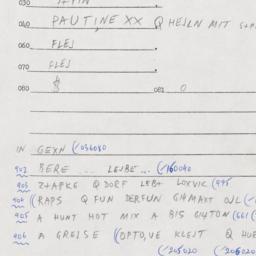 030
040 PAUTINE XX Q HEJLN MIT
060 FLEJ
070 FLEJ
080 $ 081 0
IN GEXN (/036080
902 BERE ... LEJBE ... (/160040
903 Z+APKE Q DORF LEBT LOXVIC (995
904 ((RAPS Q FUN DERFUN GIHMAXT OJL (/
905 A HUNT HOT MIX A BIS GIHTON (661 (
906 A GREJSE ((OPTO,VE KLEJT Q HUE
(/205020 (/206020